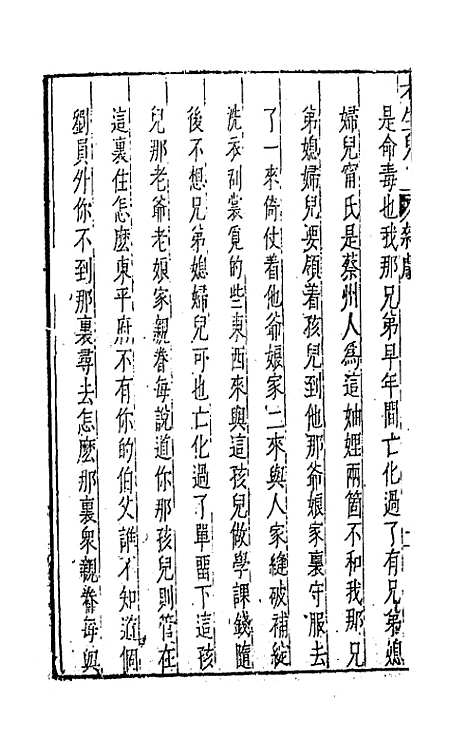 老生兒 雜劇
是命毒也我那兄弟早年間亡化過了有兄弟媳
婦兒甯氏是蔡州人為這妯娌兩箇不和我那兄
弟媳婦兒要領着孩兒到他那爺娘家裏守服去
了一來倚仗着他爺娘家二來與人家縫破補綻
洗衣刮裳覓的些東西來與這孩兒做學課錢隨
後不想兄弟媳婦兒可也亡化過了單畱下這孩
兒那老爺老娘家親眷每說道你那孩兒則管在
這裏住怎麽東平府不有你的伯父誰不知道個
劉員外你不到那裏尋去怎麽那裏衆親眷每與